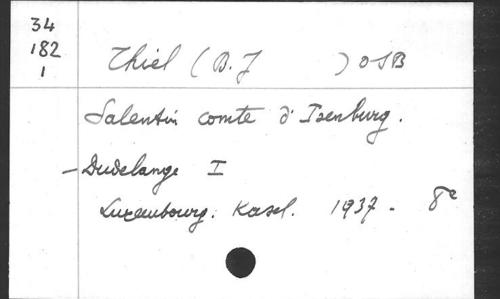 34
182
1
Thiel (B.J ) OSB
Salentin comte d'Isenburg.
- Dudelange I
Luxembourg. Kasel. 1937 - 8°